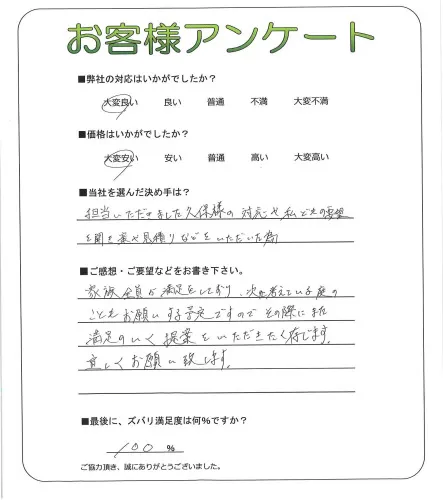 お客様アンケート
■弊社の対応はいかがでしたか?
大変良い 良い 普通 不満 大変不満
■価格はいかがでしたか?
大変安い 安い 普通 高い 大変高い
■当社を選んだ決め手は?
担当いただきました久保様の対応や私どもの要望
を聞き案や見積りなどをいただいた為
■ご感想・ご要望などをお書き下さい。
家族全員が満足をしており、次に考えている庭の
こともお願いする予定ですのでその際にまた
満足のいく提案をいただきたく存じます。
宜しくお願い致します。
■最後に、ズバリ満足度は何%ですか?
100 %
ご協力頂き、誠にありがとうございました。